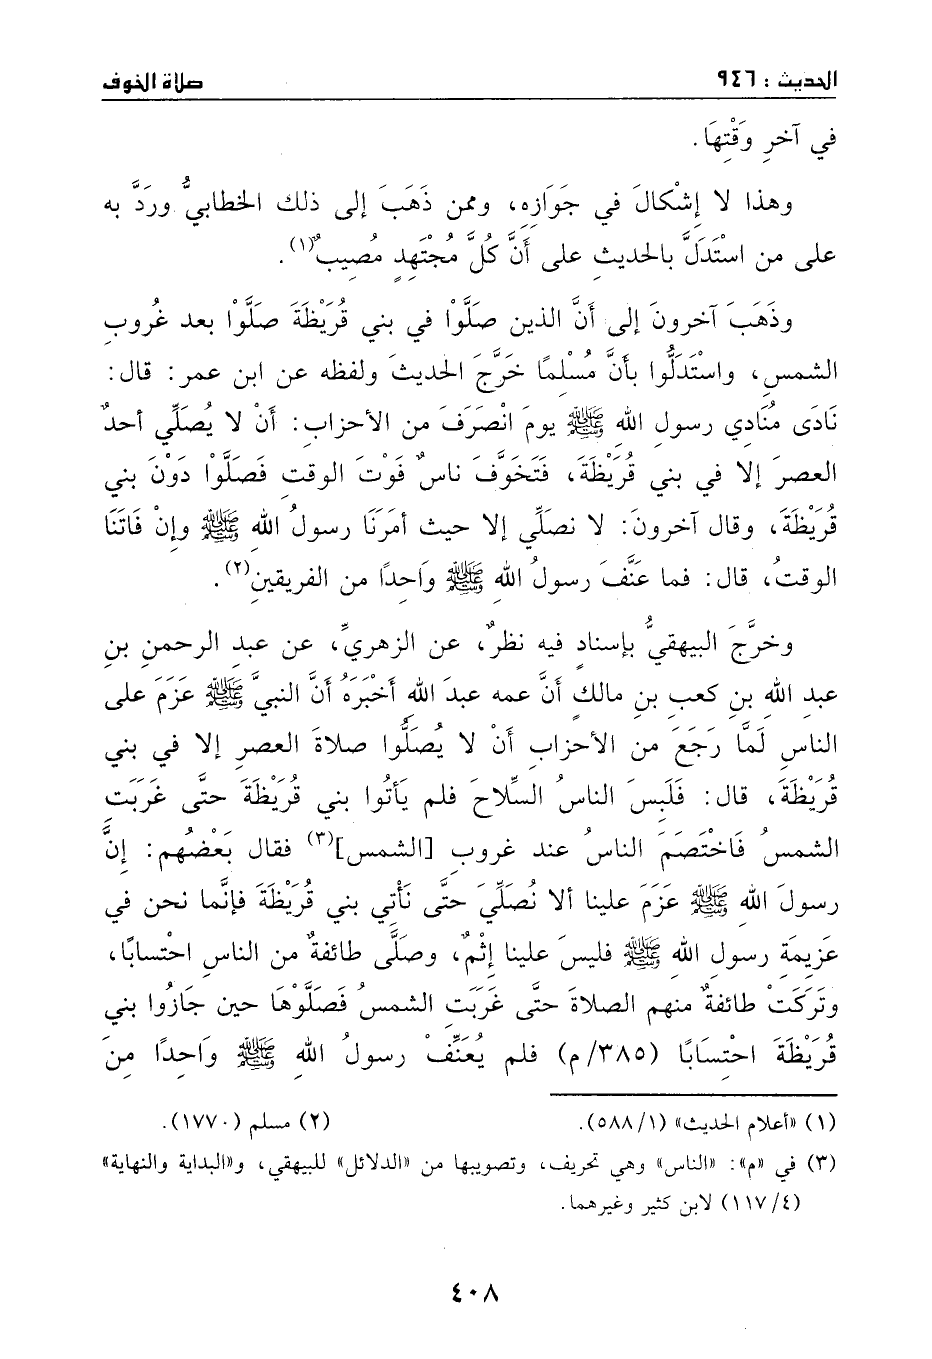 الحديث : ٩٤٦ صلاة الخوف
في آخرِ وَقْتِهَا.
وهذا لا إِشْكالَ في جَوَازِهِ، وممن ذَهَبَ إلى ذلك الخطابيُّ ورَدَّ به
على من استْدَلَّ بالحديثِ على أَنَّ كُلَّ مُجْتَهِدٍ مُصِيبٌ(١).
وذَهَبَ آخرونَ إلى أنَّ الذين صَلَّوْا في بني قُرَيْظَةَ صَلَّوْا بعد غُروبِ
الشمسِ، واستْدَلُّوا بأنَّ مُسْلِمًا خَرَّجَ الحديثَ ولفظه عن ابن عمر: قال:
نَادَى مُنَادِي رسولِ اللهِ ﷺ يومَ انْصَرَفَ من الأحزابِ: أنْ لا يُصَلِّي أحدٌ
العصرَ إلا في بني قُرَيْظَةَ، فَتَخَوَّفَ ناسٌ فَوْتَ الوقتِ فَصَلَّوْا دَوْنَ بني
قُرَيْظَةَ، وقال آخرونَ: لا نصَلِّي إلا حيث أمَرَنَا رسولُ اللهِ ﷺ وإنْ فَاتَنَا
الوقتُ، قال: فما عَنَّفَ رسولُ اللهِ ﷺ وَاحِدًا من الفريقينِ(٢).
وخرَّجَ البيهقيُّ بإسنادٍ فيه نظرٌ، عن الزهريِّ، عن عبدِ الرحمنِ بنِ
عبدِ اللهِ بنِ كعبِ بنِ مالكٍ أنَّ عمه عبدَ اللهِ أخْبَرَهُ أنَّ النبيَّ ﷺ عَزَمَ على
الناسِ لَمَّا رَجَعَ من الأحزابِ أنْ لا يُصَلُّوا صلاةَ العصرِ إلا في بني
قُرَيْظَةَ، قال: فَلَبِسَ الناسُ السِّلاحَ فلم يَأتُوا بني قُرَيْظَةَ حتَّى غَرَبَتِ
الشمسُ فَاخْتَصَمَ الناسُ عند غروبِ [الشمس](٣) فقال بَعْضُهم: إنَّ
رسولَ اللهِ ﷺ عَزَمَ علينا ألا نُصَلِّيَ حتَّى نَأْتِي بني قُرَيْظَةَ فإنَّما نحن في
عَزِيمَةِ رسولِ اللهِ ﷺ فليسَ علينا إثْمٌ، وصلَّى طائفةٌ من الناسِ احْتسابًا،
وتَرَكَتْ طائفةٌ منهم الصلاةَ حتَّى غَرَبَتِ الشمسُ فَصَلَّوْهَا حين جَازُوا بني
قُرَيْظَةَ احْتِسَابًا (٣٨٥/م) فلم يُعَنِّفْ رسولُ اللهِ ﷺ وَاحِدًا مِنَ
(١) «أعلام الحديث» (١/ ٥٨٨). (٢) مسلم (١٧٧٠).
(٣) في «م»: «الناس» وهي تحريف، وتصويبها من «الدلائل» للبيهقي، و«البداية والنهاية»
(٤/ ١١٧) لابن كثير وغيرهما.
٤٠٨